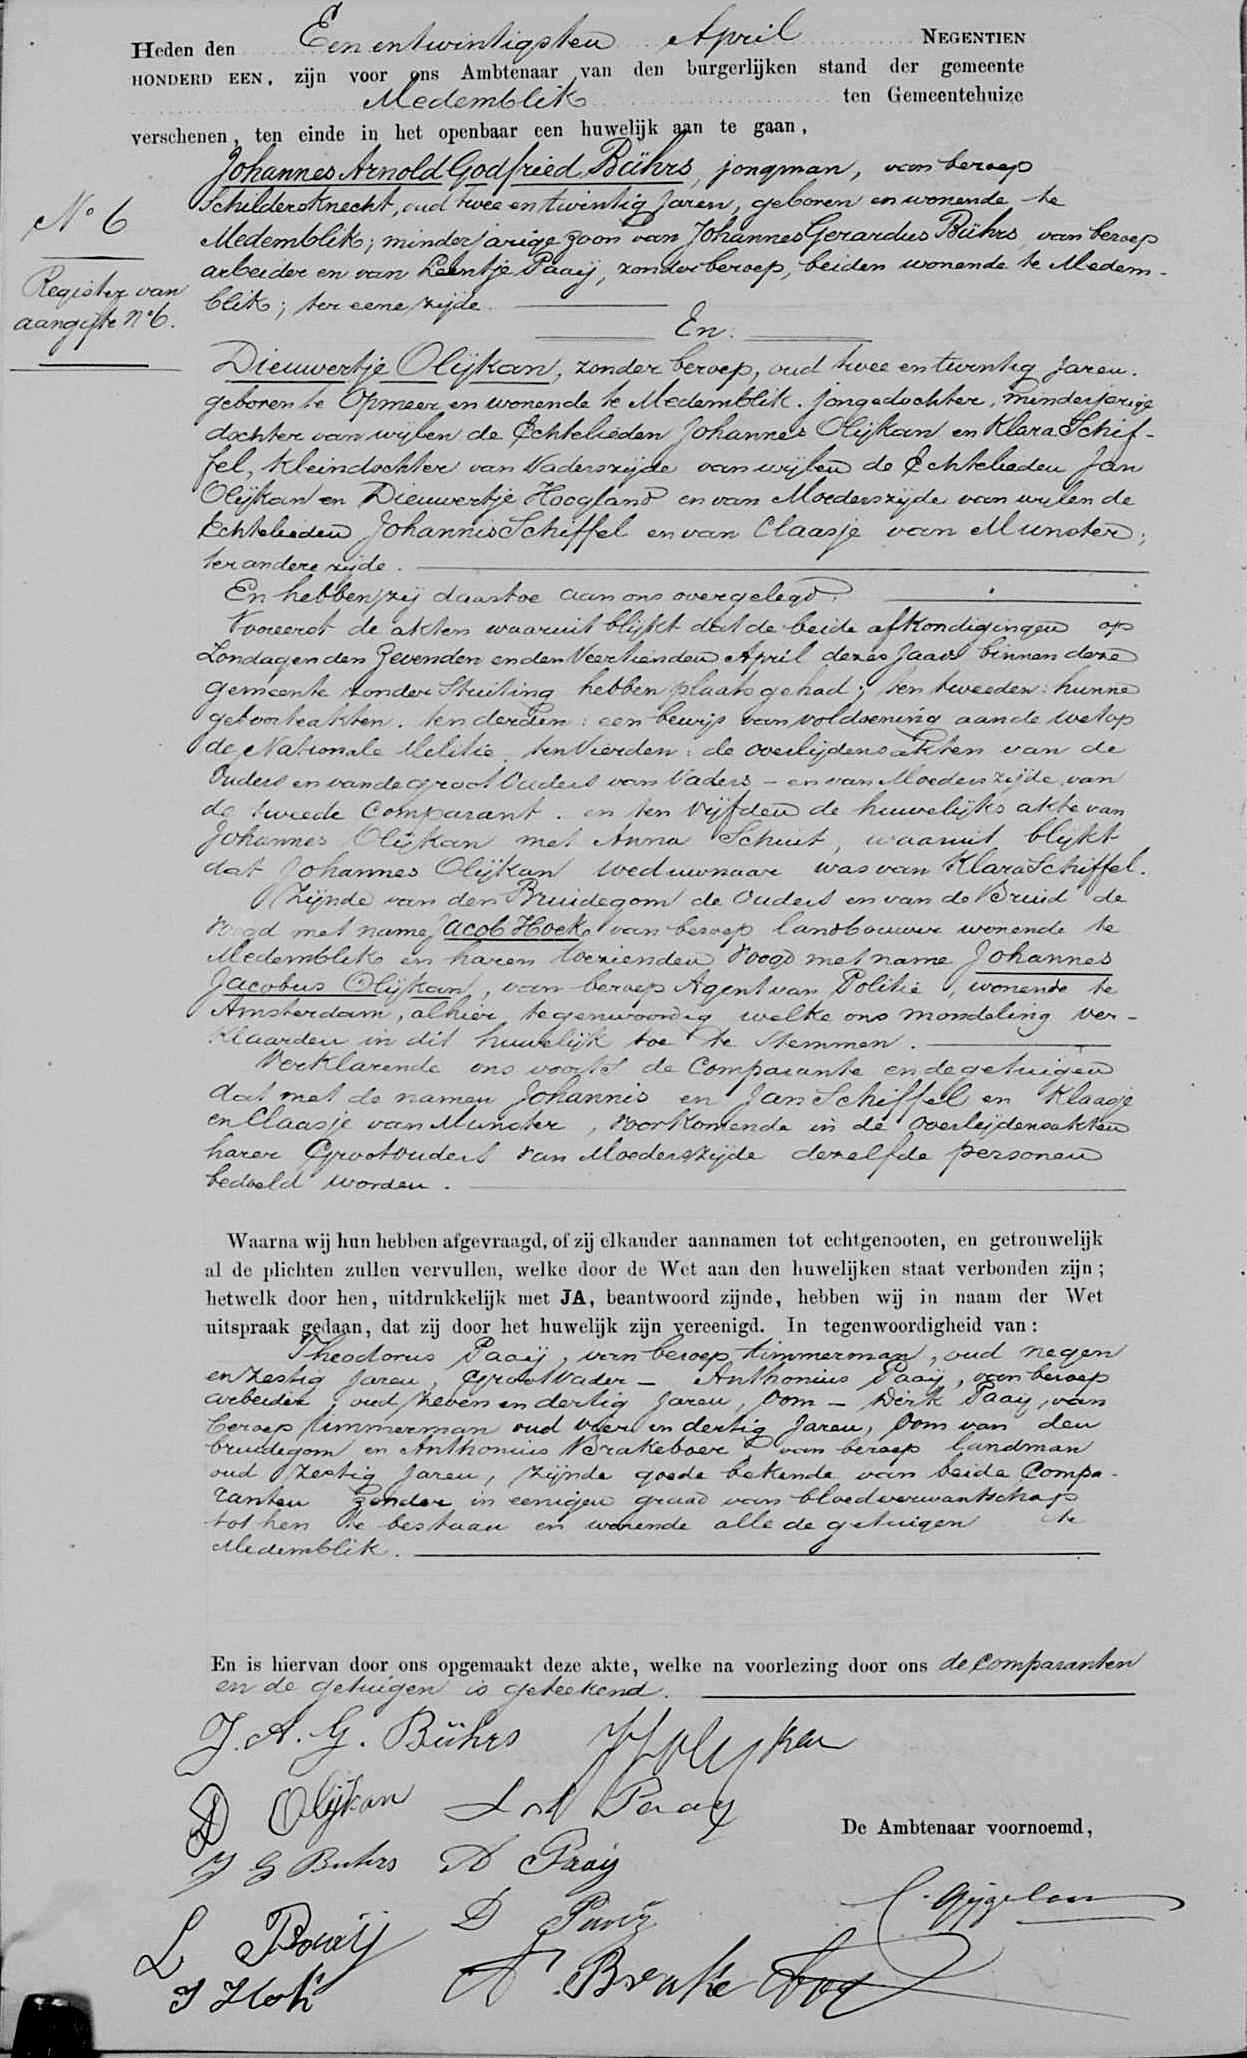 Heden den Een entwintigsten April NEGENTIEN
HONDERD EEN, zijn voor ons Ambtenaar van den burgerlijken stand der gemeente
Medemblik ten Gemeentehuize
verschenen, ten einde in het openbaar een huwelijk aan te gaan,
Johannes Arnold Godfried Bührs, jongman, van beroep
Schildersknecht, oud twee en twintig Jaren, geboren en wonende te
No 6
Medemblik; minderjarige zoon van Johannes Gerardus Bührs van beroep
arbeider en van Leentje Paaij, zonder beroep, beiden wonende te Medem-
Register van
aangifte No 6.
blik; ter eene zijde.
En.
Dieuwertje Olijkan, zonder beroep, oud twee en twintig Jaren.
geboren te Opmeer en wonende te Medemblik. jongedochter, minderjarige
dochter van wijlen de Echtelieden Johannes Olijkan en Klara Schif-
fel, kleindochter van Vaderszijde van wijlen de Echtelieden Jan
Olijkan en Dieuwertje Hoogland en van Moederszijde van wijlen de
Echtelieden Johannis Schiffel en van Claasje van Munster;
ter andere zijde.
En hebben zij daartoe aan ons overgelegd:
Vooreerst de akten waaruit blijkt dat de beide afkondigingen op
Zondagen den Zevenden en den Veertienden April dezes Jaars binnen deze
gemeente zonder Stuiting hebben plaats gehad; ten tweeden: hunne
geboorteakten. ten derden: een bewijs van voldoening aan de wet op
de Nationale Melitie, ten Vierden: de overlijdensakten van de
Ouders en van de groot Ouders van Vaders- en van Moederszijde van
de tweede Comparant. en ten Vijfden de huwelijks akte van
Johannes Olijkan met Anna Schuit, waaruit blijkt
dat Johannes Olijkan weduwnaar was van Klara Schiffel.
Zijnde van den Bruidegom de Ouders en van de Bruid de
voogd met name Jacob Hoek van beroep landbouwer wonende te
Medemblik en haren toezienden Voogd met name Johannes
Jacobus Olijkan, van beroep Agent van Politie, wonende te
Amsterdam, alhier tegenwoordig welke ons mondeling ver-
klaarden in dit huwelijk toe te Stemmen.
Verklarende ons voorts de Comparante en de getuigen
dat met de namen Johannis en Jan Schiffel en Klaasje
en Claasje van Munster, voorkomende in de overlijdensakten
harer Grootouders van Moederszijde dezelfde personen
bedoeld worden.
Waarna wij hun hebben afgevraagd, of zij elkander aannamen tot echtgenooten, en getrouwelijk
al de plichten zullen vervullen, welke door de Wet aan den huwelijken staat verbonden zijn;
hetwelk door hen, uitdrukkelijk met JA, beantwoord zijnde, hebben wij in naam der Wet
uitspraak gedaan, dat zij door het huwelijk zijn vereenigd. In tegenwoordigheid van:
Theodorus Paaij, van beroep timmerman, oud negen
en zestig Jaren, Grootvader - Anthonius Paaij, van beroep
arbeider, oud zeven en dertig Jaren, Oom - Dirk Paaij, van
beroep timmerman oud vier en dertig Jaren, Oom van den
bruidegom en Anthonius Brakeboer van beroep landman
oud zestig Jaren, zijnde goede bekende van beide Compa-
ranten zonder in eenigen graad van bloedverwantschap
tot hen te bestaan en wonende alle de getuigen te
Medemblik.
En is hiervan door ons opgemaakt deze akte, welke na voorlezing door ons de comparanten
en de getuigen is geteekend.
J. A. G. Bührs
D Olijkan
De Ambtenaar voornoemd,
J G Buhrs A Paaij
L Paaij D Paaij
J Hoek A. Brakeboer